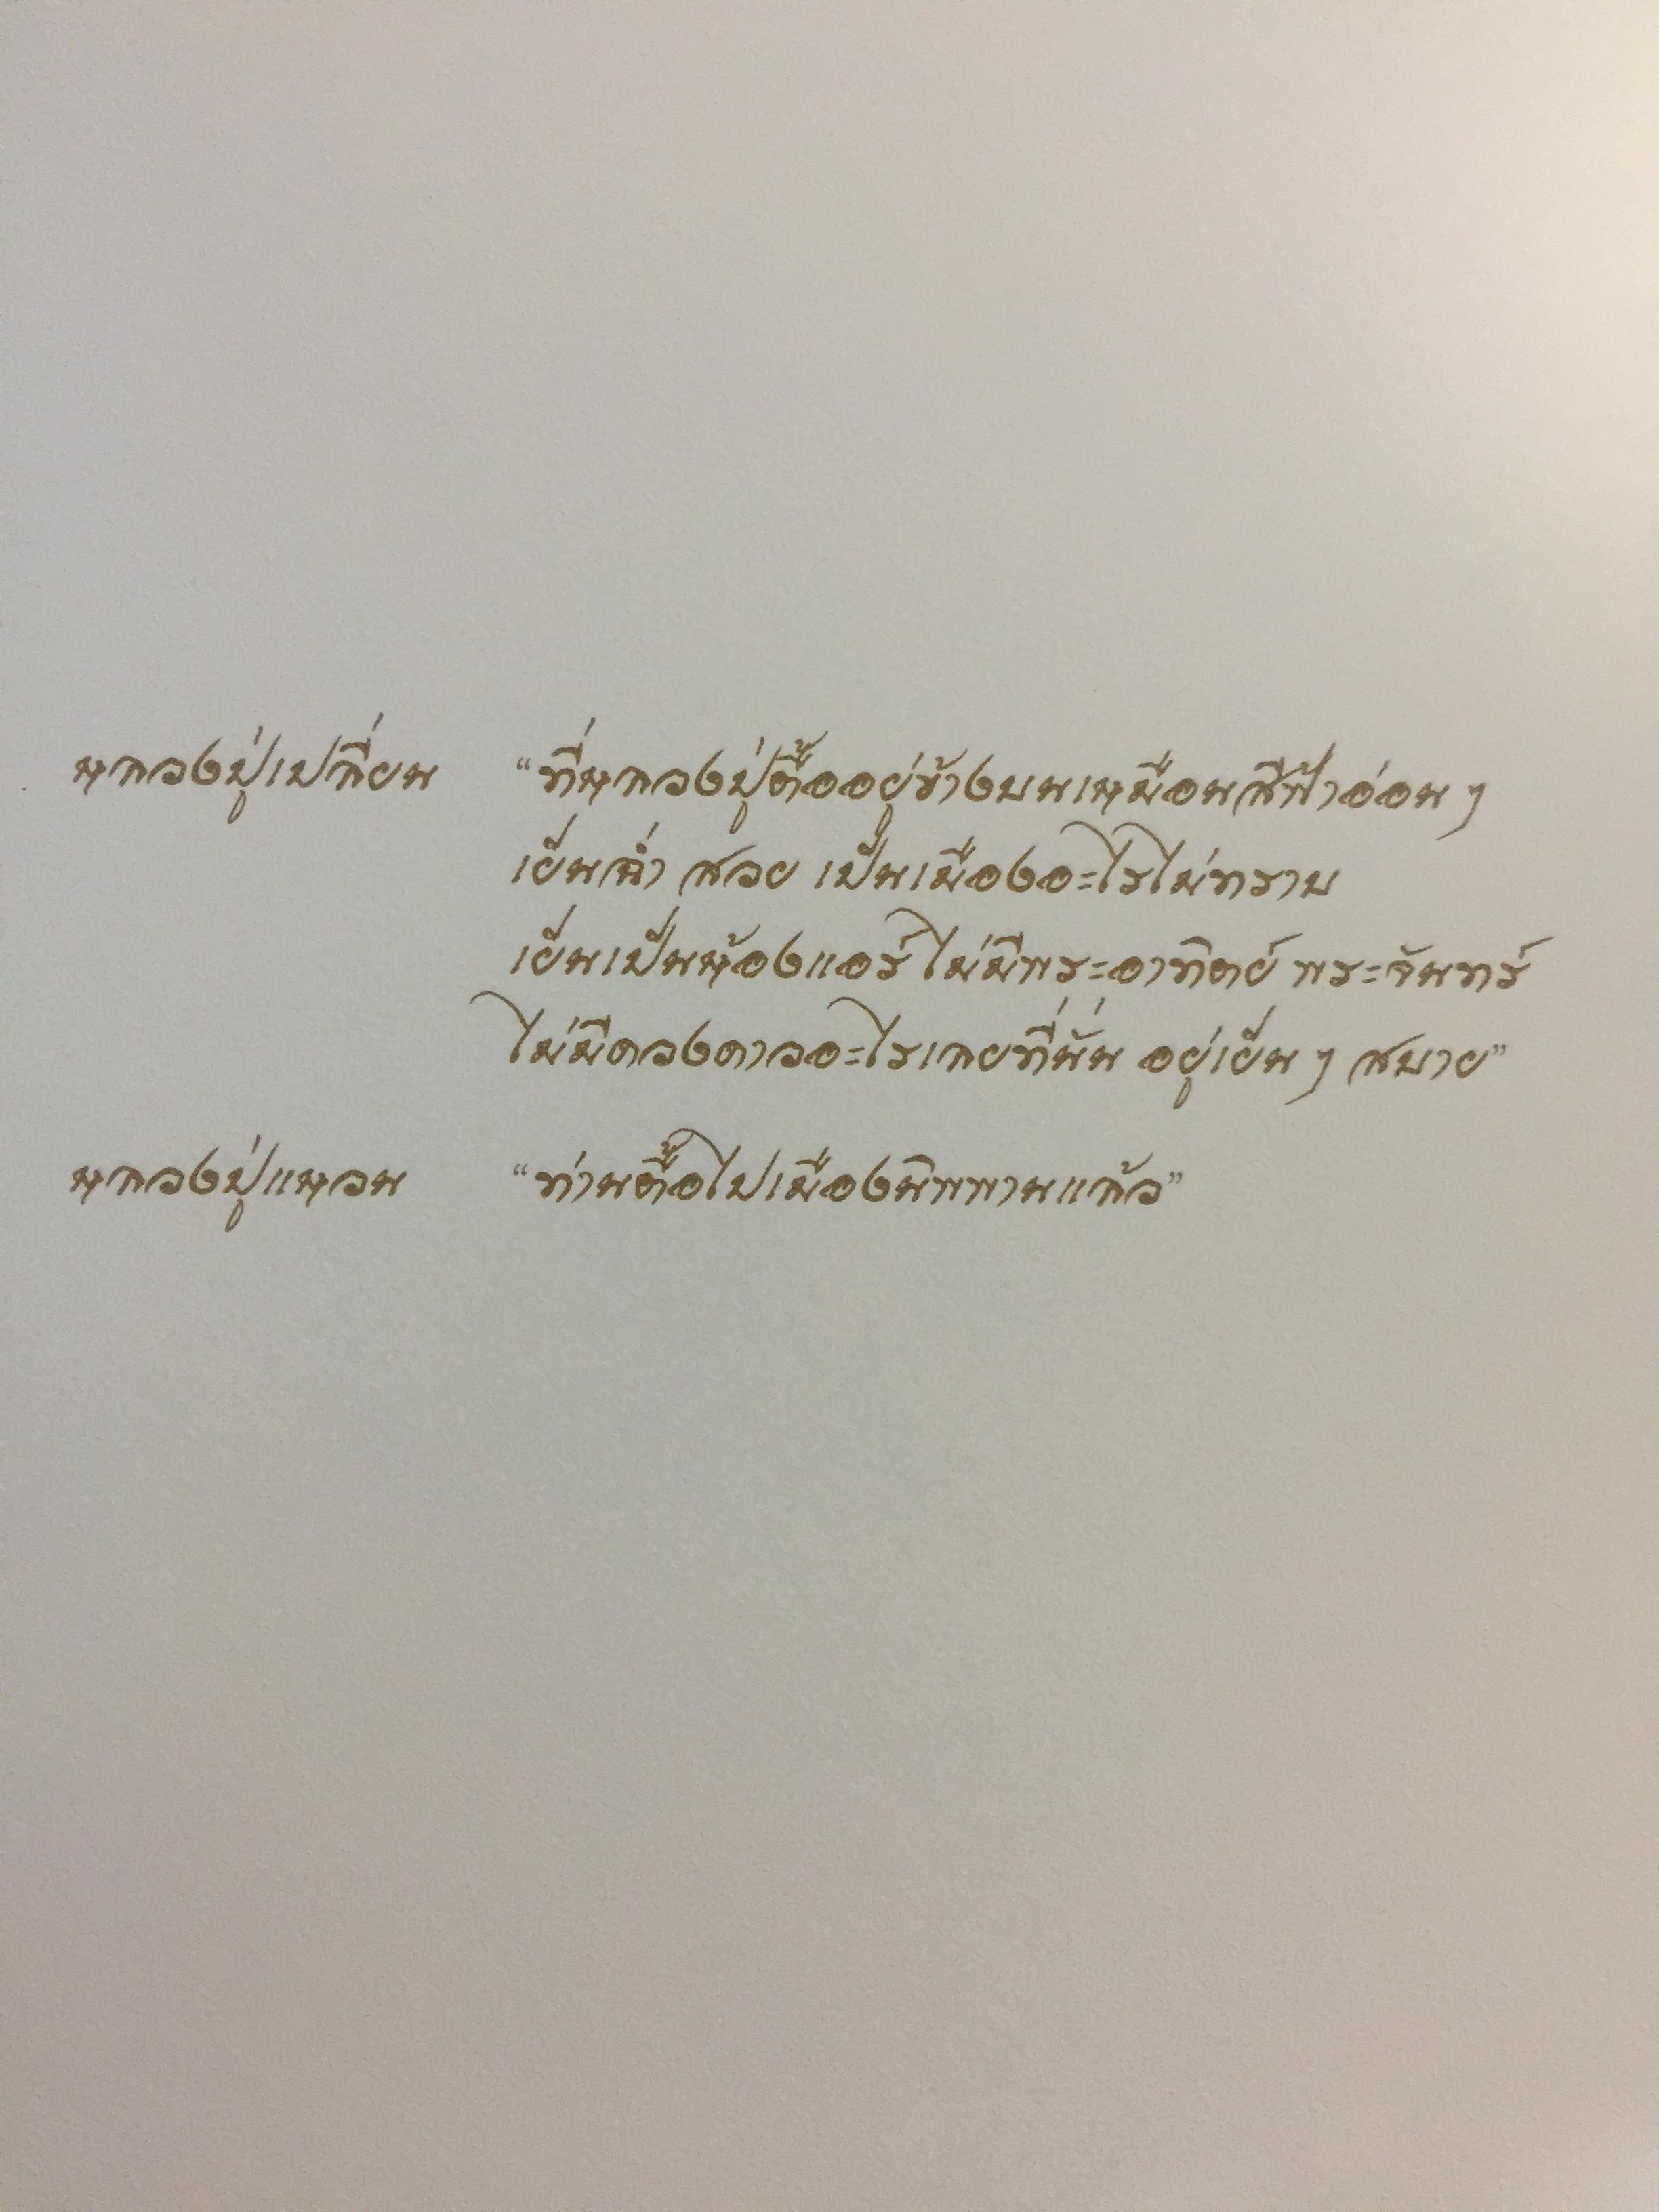 หลวงปู่เปลี่ยน “ที่หลวงปู่ตื้ออยู่ข้างบนเหมือนสีฟ้าอ่อน ๆ
เย็นฉ่ำ สวย เป็นเมืองอะไรไม่ทราบ
เย็นเป็นห้องแอร์ ไม่มีพระอาทิตย์ พระจันทร์
ไม่มีดวงดาวอะไรเลยที่นั่น อยู่เย็น ๆ สบาย”
หลวงปู่แหวน “ท่านตื้อไปเมืองนิพพานแล้ว”